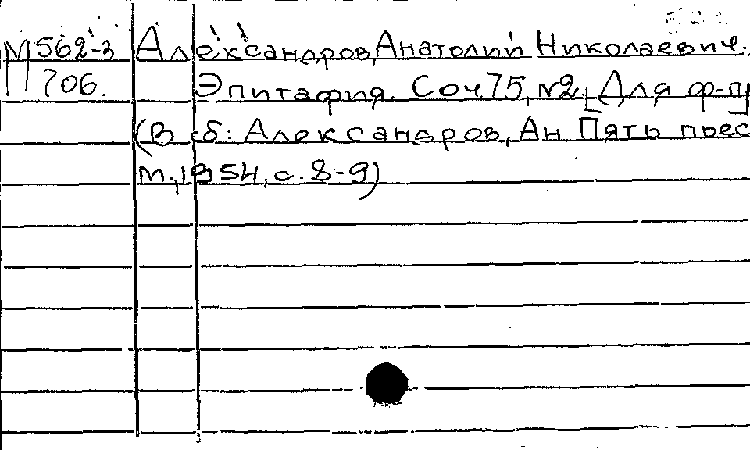 М 562-3 Александров, Анатолий Николаевич.
706. Эпитафия. Соч. 75, №2. [Для ф-п
(В сб: Александров, Ан. Пять пьес
М., 1954, с. 8-9)